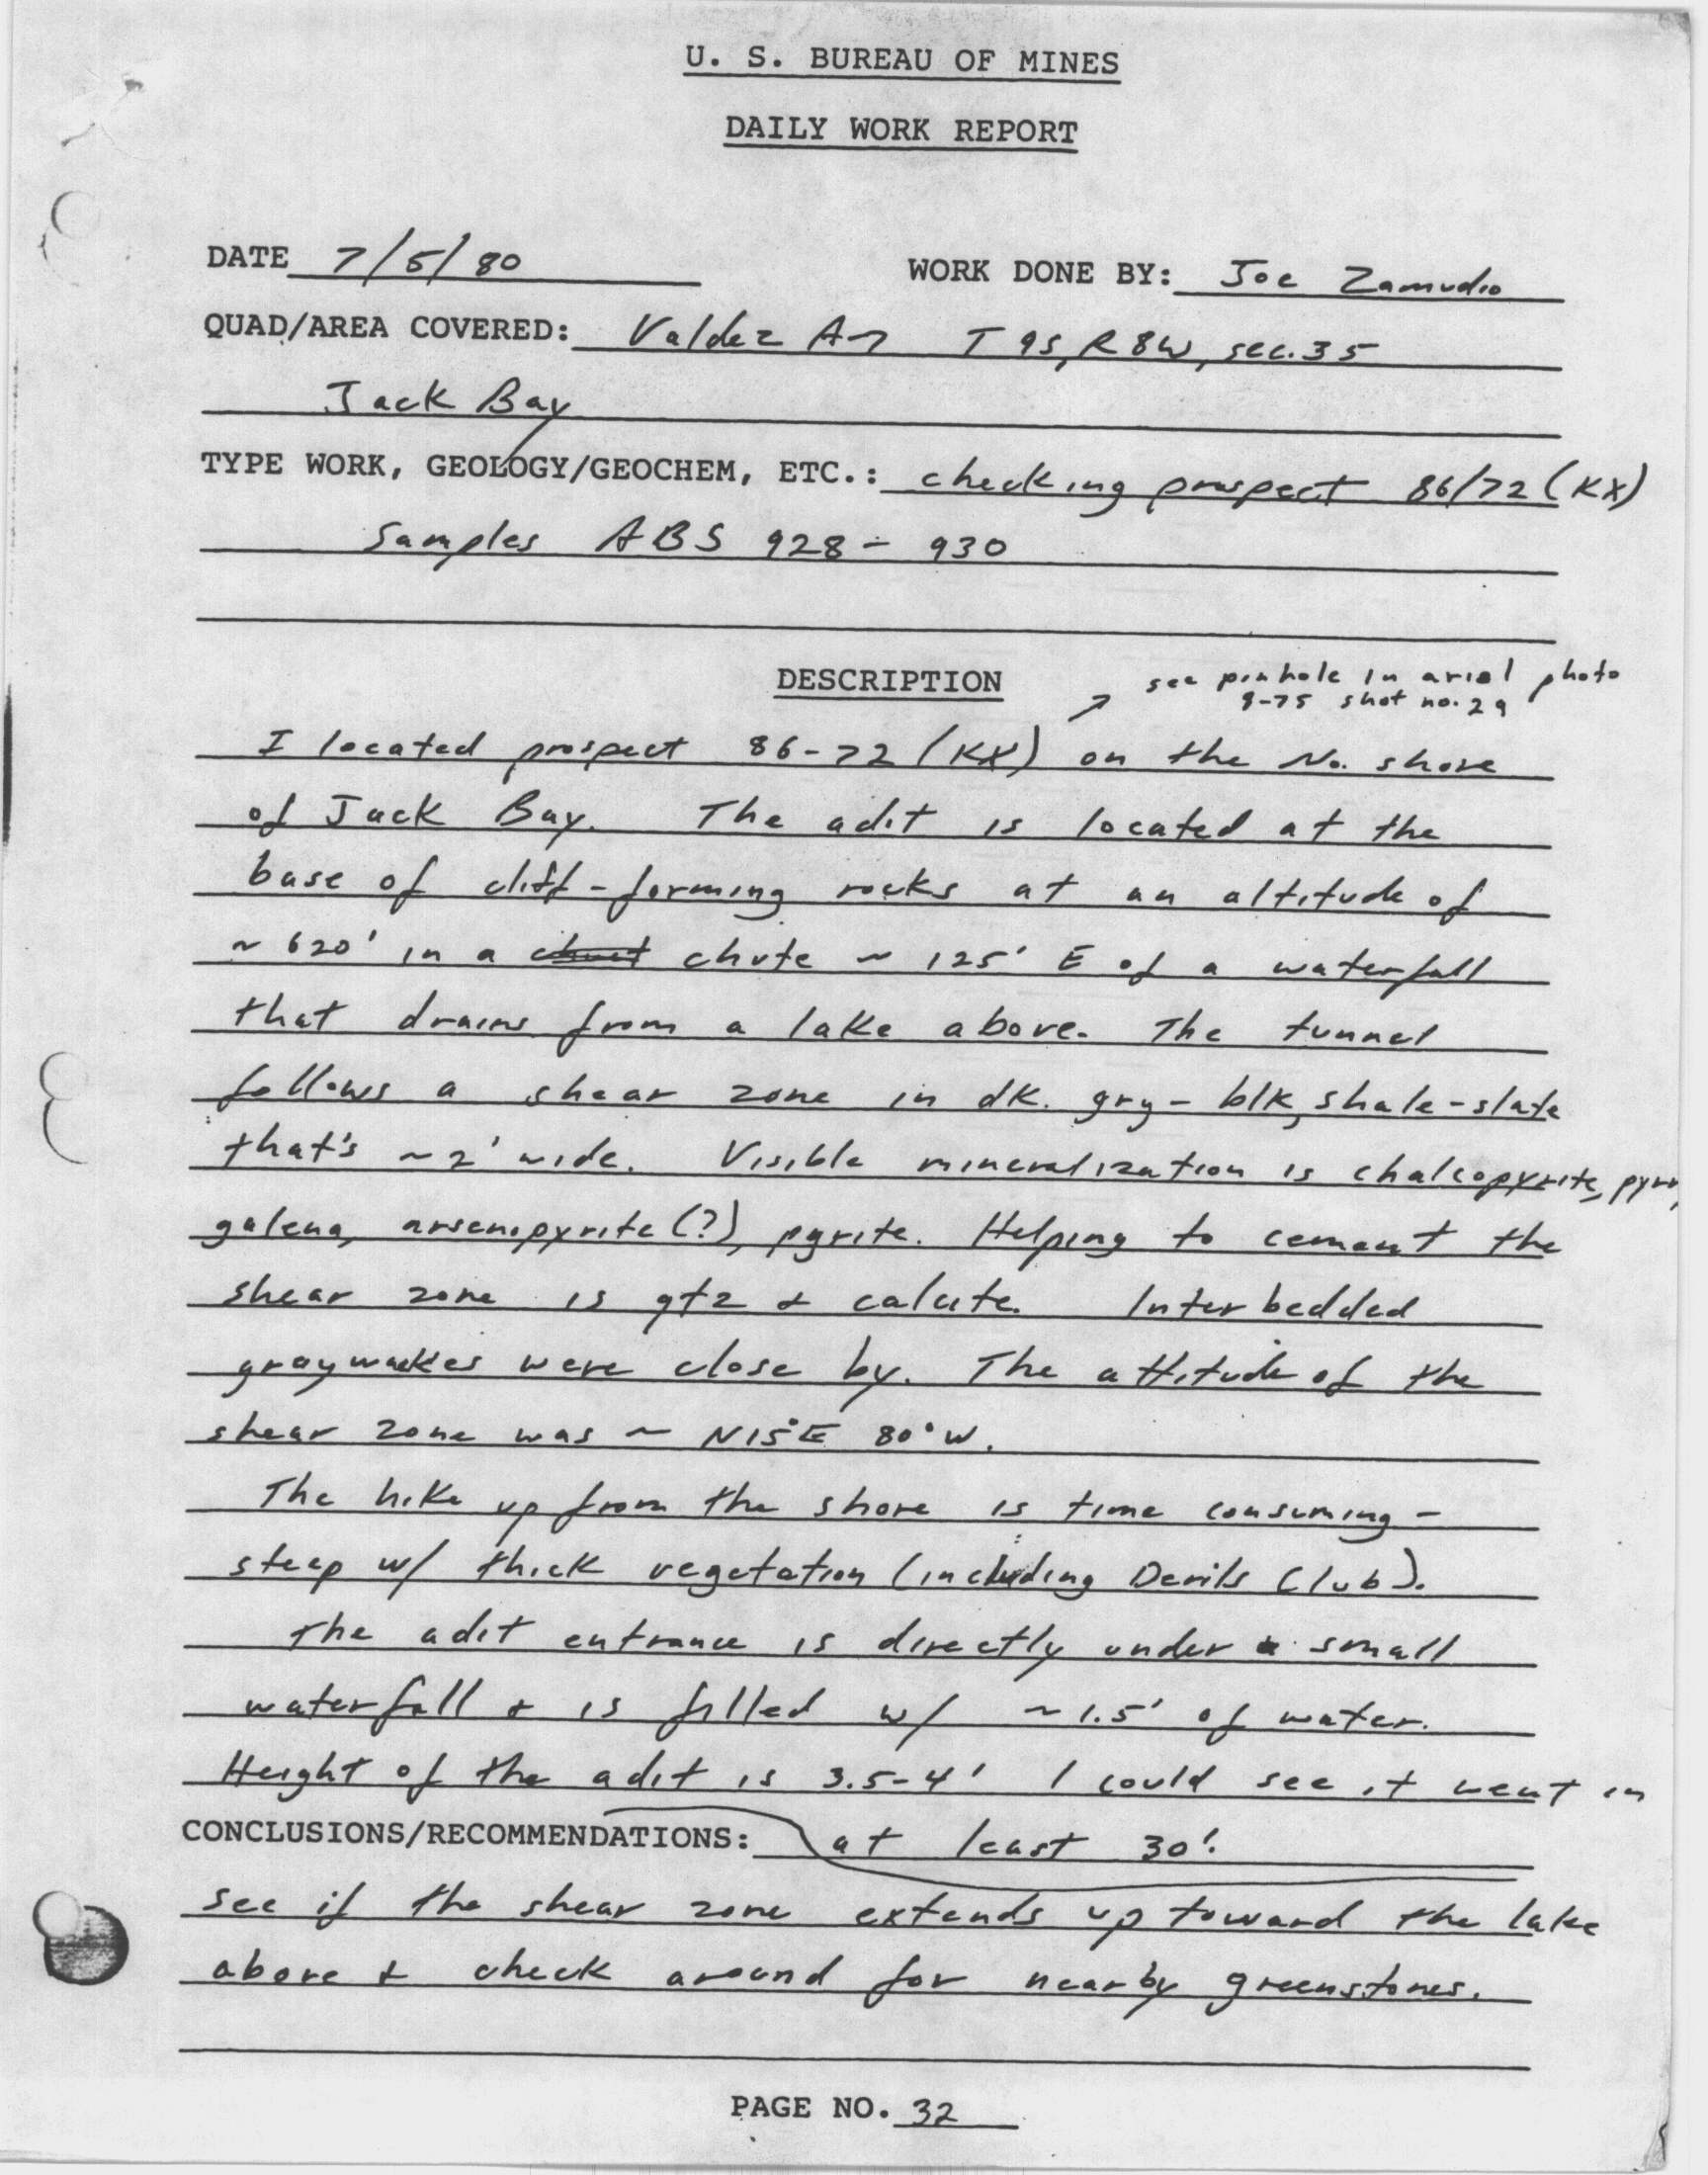 U. S. BUREAU OF MINES
DAILY WORK REPORT
DATE 7/5/80 WORK DONE BY: Joe Zamudio
QUAD/AREA COVERED: Valdez A-7 T9S, R8W, sec. 35
Jack Bay
TYPE WORK, GEOLOGY/GEOCHEM, ETC.: checking prospect 86/72 (KX)
Samples ABS 928 - 930
DESCRIPTION
see pinhole in arial photo
shot no. 29
I located prospect 86-72 (KX) on the No. shore
of Jack Bay. The adit is located at the
base of cliff-forming rocks at an altitude of
~ 620' in a chute ~ 125' E of a waterfall
that drains from a lake above. The tunnel
follows a shear zone in dk. gry - blk, shale-slate
that's ~2' wide. Visible mineralization is chalcopyrite, pyrr,
galena, arsenopyrite (?), pyrite. Helping to cement the
shear zone is qtz & calcite. Interbedded
graywackes were close by. The attitude of the
shear zone was ~ N15°E 80°W.
The hike up from the shore is time consuming -
steep w/ thick vegetation (including Devils Club).
The adit entrance is directly under a small
waterfall & is filled w/ ~1.5' of water.
Height of the adit is 3.5-4' I could see it went in
CONCLUSIONS/RECOMMENDATIONS: at least 30'.
see if the shear zone extends up toward the lake
above & check around for nearby greenstones.
PAGE NO. 32